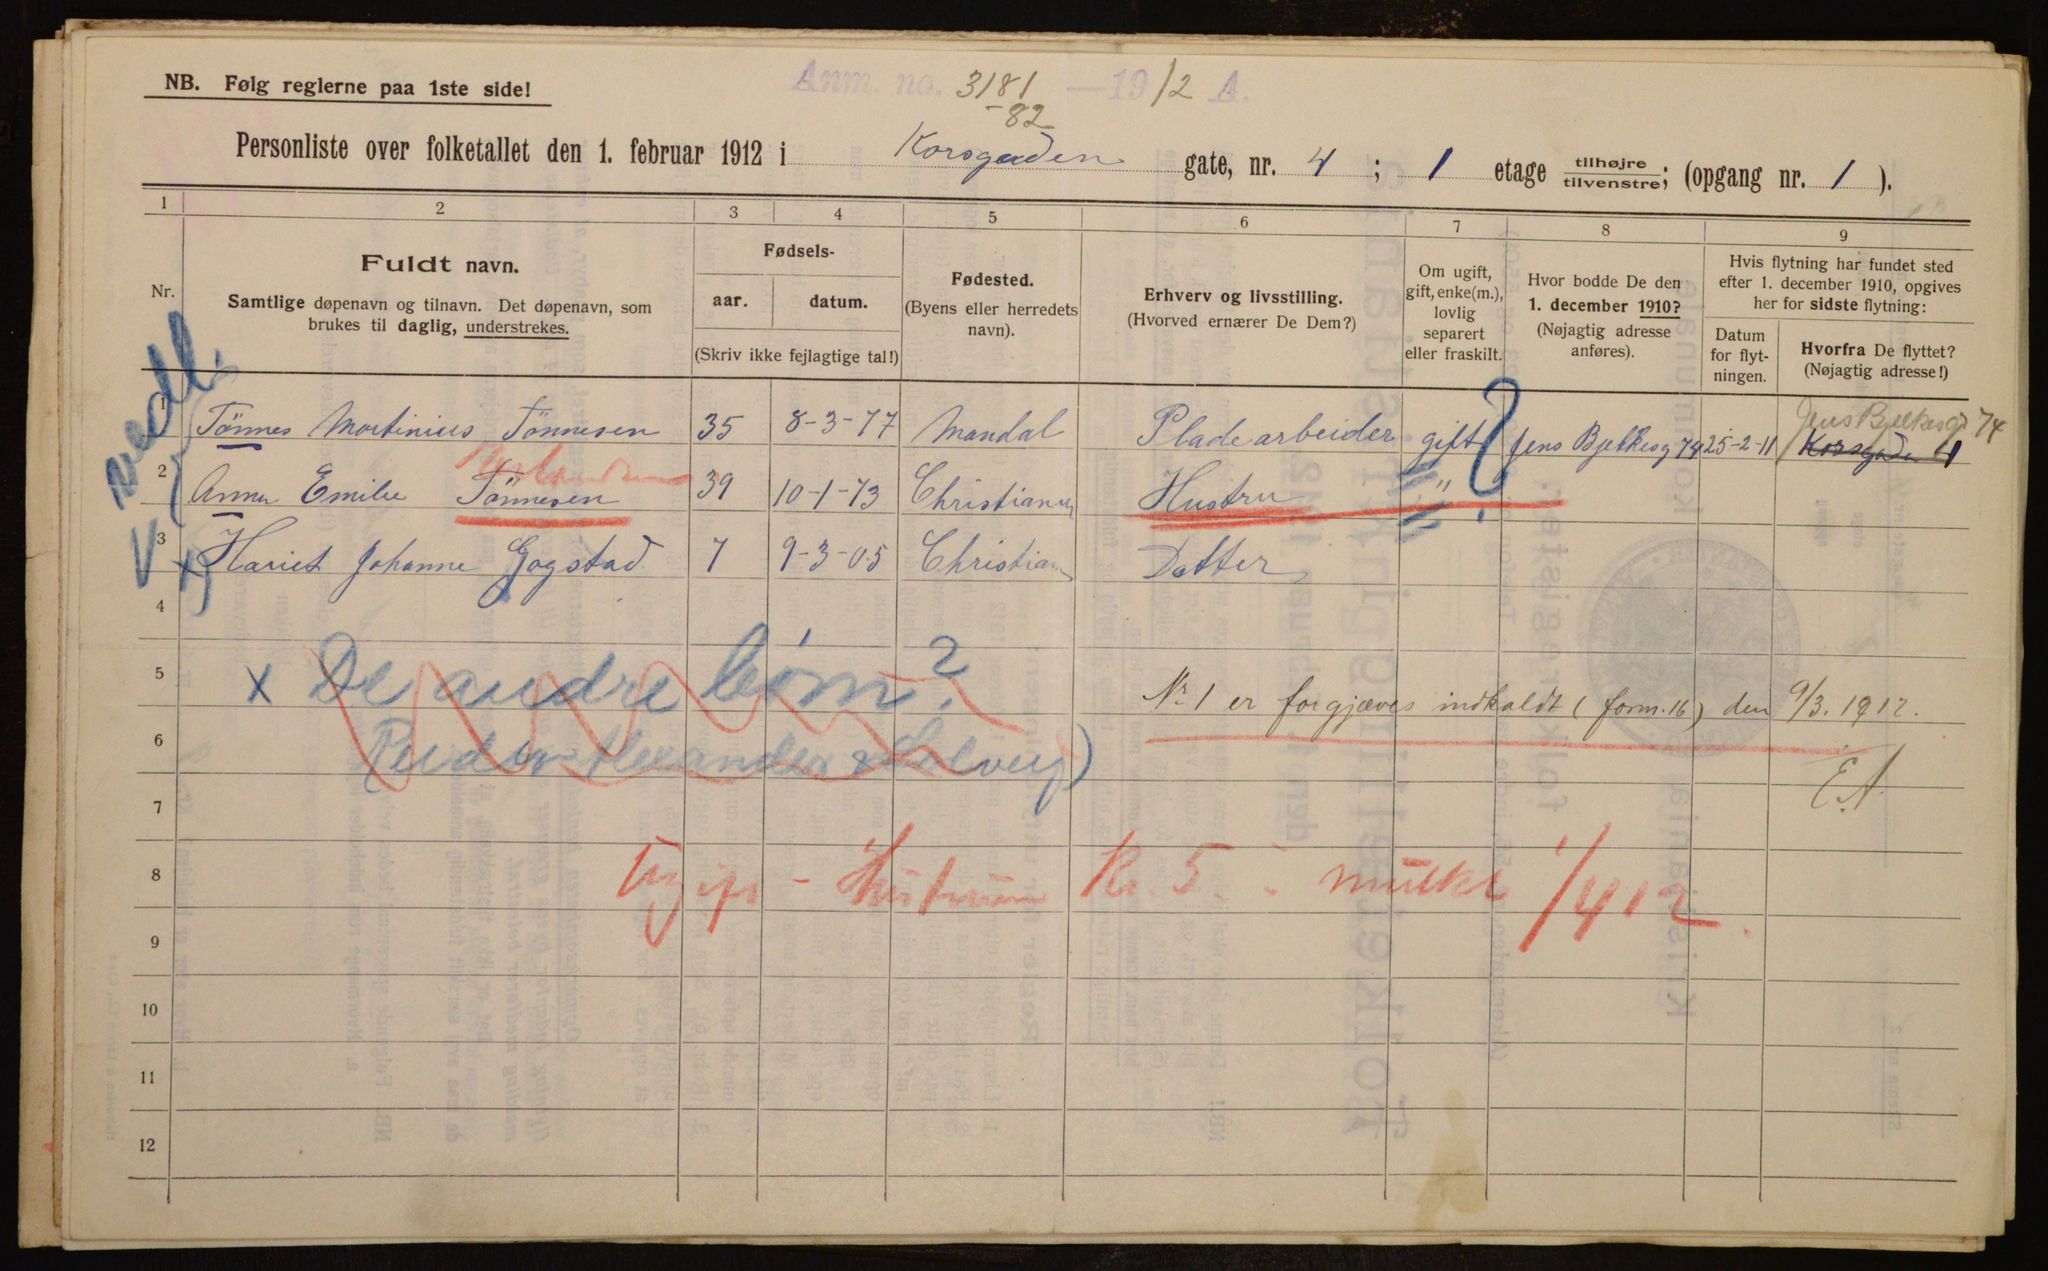 NB. Følg reglerne paa 1ste side!
Anm. no. 3181 — 1912 A.
-82
Personliste over folketallet den 1. februar 1912 i Korsgaden gate, nr. 4; 1 etage tilhøjre/tilvenstre; (opgang nr. 1).
1 2 3 4 5 6 7 8 9
Nr.
Fuldt navn.
Samtlige døpenavn og tilnavn. Det døpenavn, som
brukes til daglig, understrekes.
Fødsels-
aar. datum.
(Skriv ikke fejlagtige tal!)
Fødested.
(Byens eller herredets
navn).
Erhverv og livsstilling.
(Hvorved ernærer De Dem?)
Om ugift,
gift, enke(m.),
lovlig
separert
eller fraskilt.
Hvor bodde De den
1. december 1910?
(Nøjagtig adresse
anføres).
Hvis flytning har fundet sted
efter 1. december 1910, opgives
her for sidste flytning:
Datum
for flyt-
ningen.
Hvorfra De flyttet?
(Nøjagtig adresse!)
medl.
Jens Bjelkesgd 74
1 Tönnes Martinius Tönnesen 35 8-3-77 Mandal Pladearbeider gift ? Jens Bjelkesg 74 25-2-11 Korsgaden 4
2 Anna Emilie Tönnesen 39 10-1-73 Christiania Hustru "
3 x Hariet Johanne Gogstad 7 9-3-05 Christiania Datter
4
5 x De andre børn?
Nr 1 er forgjæves indkaldt (form. 16) den 9/3. 1912.
6
E.A.
7
8 Hustruen Kr. 5 i mulkt 1/4 12.
9
10
11
12